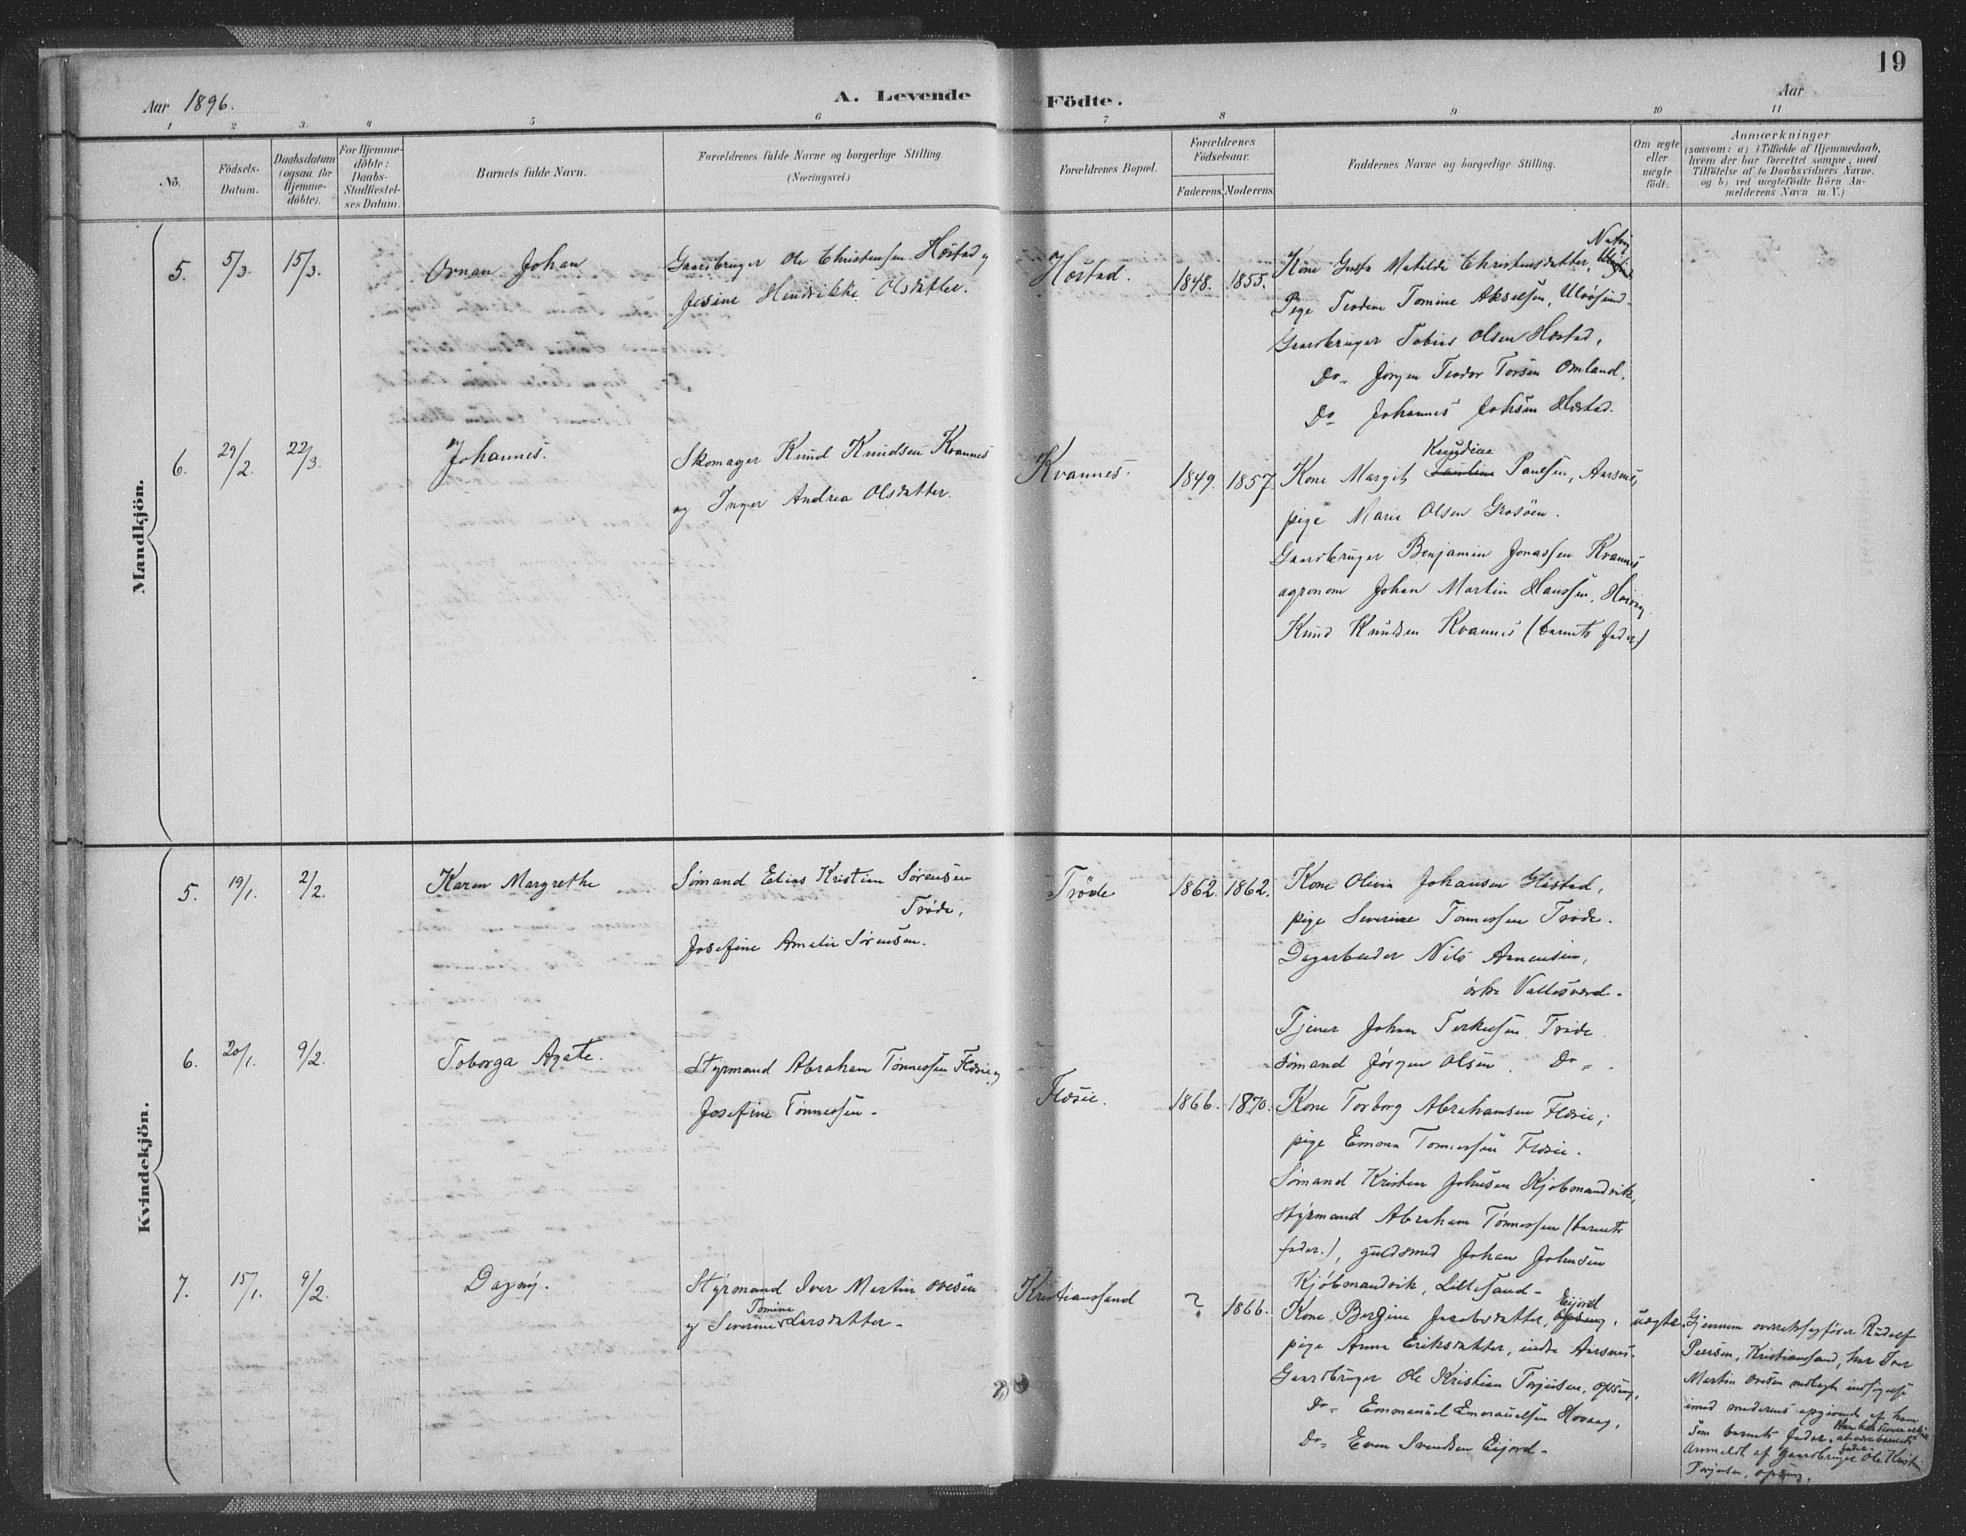 19
Aar 1896.
A. Levende Födte.
Aar
1 2 3 4 5 6 7 8 9 10 11
No.
Födsels-Datum.
Daabsdatum (ogsaa for Hjemme-döbte).
For Hjemme-döbte: Daabs-Stadfæstel-ses Datum.
Barnets fulde Navn.
Forældrenes fulde Navne og borgerlige Stilling (Næringsvei.)
Forældrenes Bopæl.
Forældrenes Födselsaar.
Faderens. Moderens.
Faddernes Navne og borgerlige Stilling.
Om ægte eller uægte födt.
Anmærkninger
(saasom: a) i Tilfælde af Hjemmedaab,
hvem der har forrettet samme, med
Tilföielse af to Daabsvidners Navne,
og b) ved uægtefödte Börn An-
melderens Navn m. V.)
Mandkjön.
5. 5/3. 15/3. Ornan Johan
Gaardbruger Ole Christensen Høstad og
Jesine Hendrikke Olsdatter.
Høstad. 1848. 1855.
Kone Matilde Christensdatter,
Pige Teodine Tomine Akselsen, Ulvøsund
Gaardbruger Tobias Olsen Høstad,
Do Jørgen Teodor Torsen Omland,
Do Johannes Johsen Høstad.
6. 29/2. 22/3. Johannes.
Skomager Knud Knudsen Kvannes
og Inger Andrea Olsdatter.
Kvannes. 1849. 1857
Knudine
Kone Margit Paulsen, Aarsnes,
pige Marie Olsen Grosøen.
Gaardbruger Benjamin Jonassen Kvannes
agronom Johan Martin Hanssen,
Knud Knudsen Kvannes (barnets fader)
Kvindekjön.
5. 19/1. 2/2. Karen Margrethe
Sømand Elias Kristian Sørensen
Trøde,
Josefine Amalie Sørensen.
Trøde 1862. 1862.
Kone Olivia Johansen Høstad,
pige Severine Tønnessen Trøde.
Dagarbeider Nils Arnensen,
Vallesværd.
Tjener Johan Terkelsen Trøde
Sømand Jørgen Olsen. Do.
6. 20/1. 9/2. Toborga Agate.
Styrmand Abraham Tønnessen Flørie og
Josefine Tønnessen.
Flørie. 1866. 1870.
Kone Torborg Abrahamsen Flørie;
pige Emma Tønnessen Flørie.
Sømand Kristen Johnsen Kjøbmandvik,
Styrmand Abraham Tønnessen (barnets
fader.), guldsmed Johan Johnsen
Kjøbmandvik, Lillesand.
7. 15/1. 9/2. Dagny.
Styrmand Iver Martin Ovesen
Tomine
og Severine Larsdatter.
Kristianssand ? 1866.
Eijord
Kone Bergine Jacobsdatter,
pige Anna Eriksdatter, indre Aarsnes.
Gaardbruger Ole Kristian Terjesen, Opsang,
Do. Emmanuel Emanuelsen Hovaag,
Do. Even Svendsen Eijord.
uægte.
Gjennem overretssagfører Rudolf
Peersen, Kristianssand, har Iver
Martin Ovesen nedlagt indsigelse
imod moderens opgivende af ham
som barnets fader.
Anmeldt af gaardbruger Ole Kristian
Terjesen, Opsang.